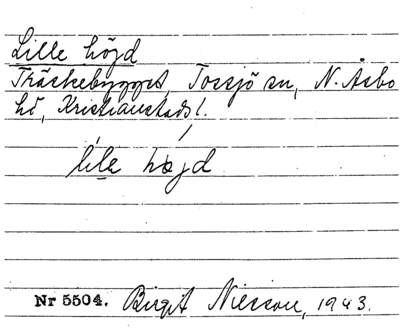 Lille höjd
Träskebygget, Tossjö sn, N. Åsbo
hd, Kristianstads l.
lile hæjd
Nr 5504. Birgit Nilsson, 1943.